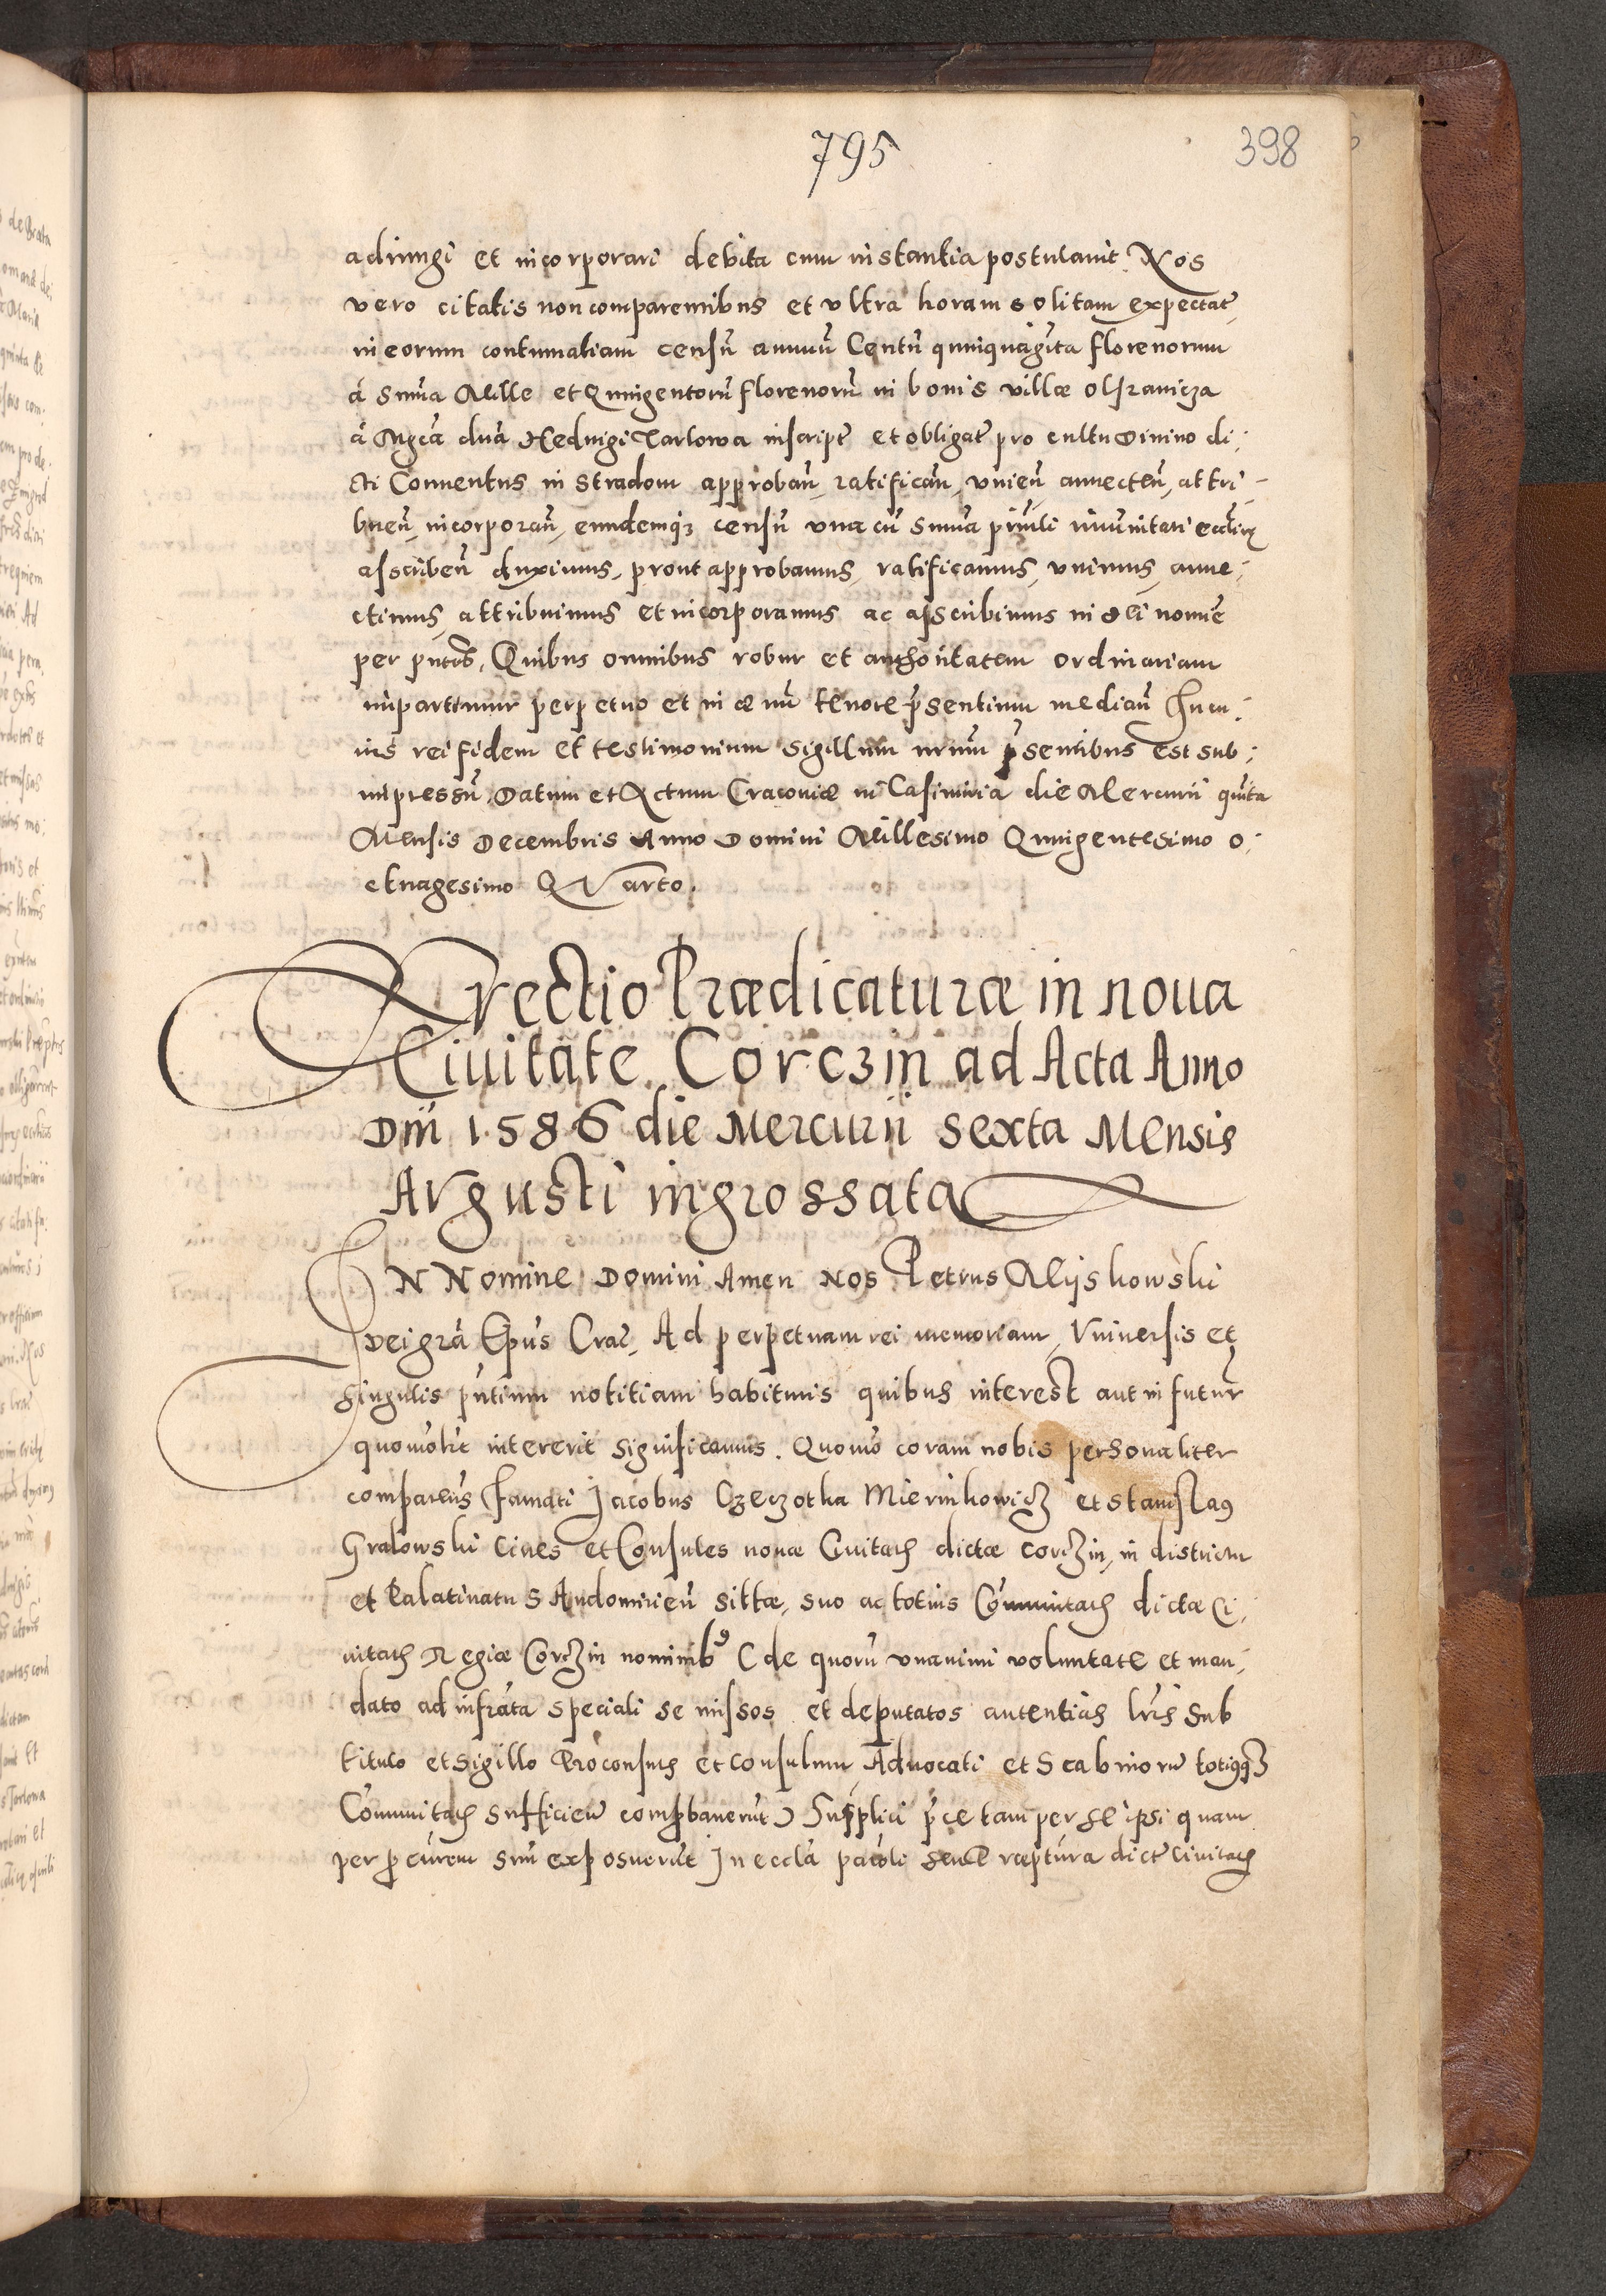 795
398
adiungi et incorporari debita cum instantia postulavit Nos
vero citatis non comparentibus et vltra horam solitam expectat̃
in eorum contumatiam censũ annuũ Centũ quinquagĩta florenorum
à Sum̃a Mille et Quingentorũ florenorũ in bonis villæ Olsranicza
à Mgcã dnã Hedvigi Tarlowa inscript̃ et obligat̃ pro cultu Divino di¬
cti Conventus in Stradom approbañ, ratificañ, vnieñ, annecteñ, attri¬
bueñ, incorporañ, eundemqꝫ censũ vna cũ sum̃a prĩcli im̃unitati ecclicæ
asscribeñ duximus, prout approbamus, ratificamus, vnimus, anne¬
ctimus, attribuimus et incorporamus ac asscribimus in dei nomĩe
per pntes̃, Quibus omnibus robur et authoritatem ordinariam
impartimur perpetuo et in æuũ tenore p̃sentium mediañ In cu¬
ius rei fidem et testimonium Sigillum nrum̃ p̃sentibus est sub¬
impressũ, Datum et Actum Cracoviæ in Casimiria die Mercurii quĩta
Mensis Decembris Anno Domini Millesimo Quingentesimo o¬
ctuagesimo QVarto.
Erectio Prædicaturæ in noua
Ciuitate Corczin ad Acta Anno
Dñi 1586 die Mercurii sexta Mensis
AVgusti ingrossata
IN Nomine Domini Amen Nos Petrus Myskowski
Dei grã Ep̃us Crac̃, Ad perpetuam rei memoriam, Vniuersis et
singulis pñtium notitiam habituris quibus interest aut in futur̃
quomõlt intererit significamus. Quomõ coram nobis personaliter
compareñs Famati Jacobus Czeczotka Mierinkowicz et Stanislaꝰ
Gralowski Cives et Consules nouæ Ciuitatis dictæ Corczin, in districtu
et Palatinatu SAndomirieñ sittæ, suo ac totius Com̃unitatis dictæ Ci¬
uitatis Regiæ Corczin nominibꝰ (de quorũ vnanimi voluntate et man¬
dato ad infrãta speciali se missos et deputatos autenticis lrĩs sub
titulo et Sigillo Proconsulis et Consulum, Advocati et Scabinorũ totiusqꝫ
Com̃unitatis sufficieñ comp̃bauerũt) Supplici p̃ce tam per se ipsi quam
per p̃curem̃ sũm exposuerũt In eccla parõli seu Præptura dict̃ Ciuitatis